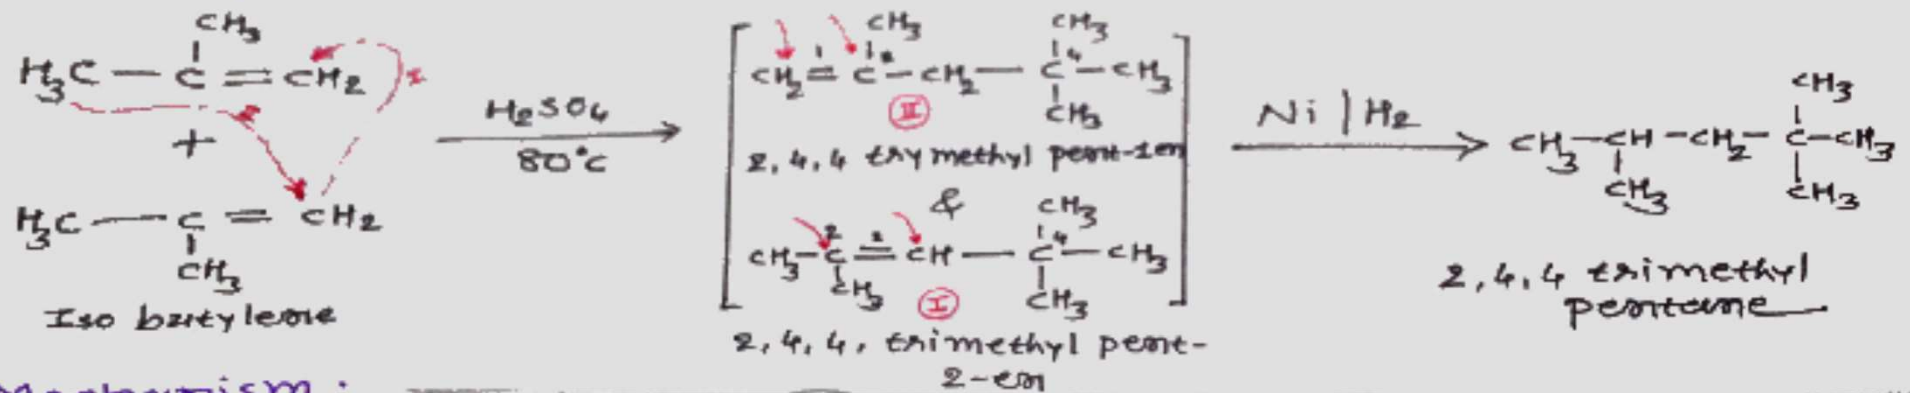 CH3
H3C — C = CH2
+
H3C — C = CH2
CH3
Iso butylene
H2SO4
80°C
CH3 CH3
CH2 = C - CH2 — C - CH3
1 2 4
CH3
II
2, 4, 4 trymethyl pent-1en
&
CH3
CH3 - C = CH — C - CH3
2 4
CH3 CH3
I
2, 4, 4, trimethyl pent-
2-en
Ni | H2
CH3
CH3 - CH - CH2 - C - CH3
CH3 CH3
2, 4, 4 trimethyl
pentane
Mechanism :